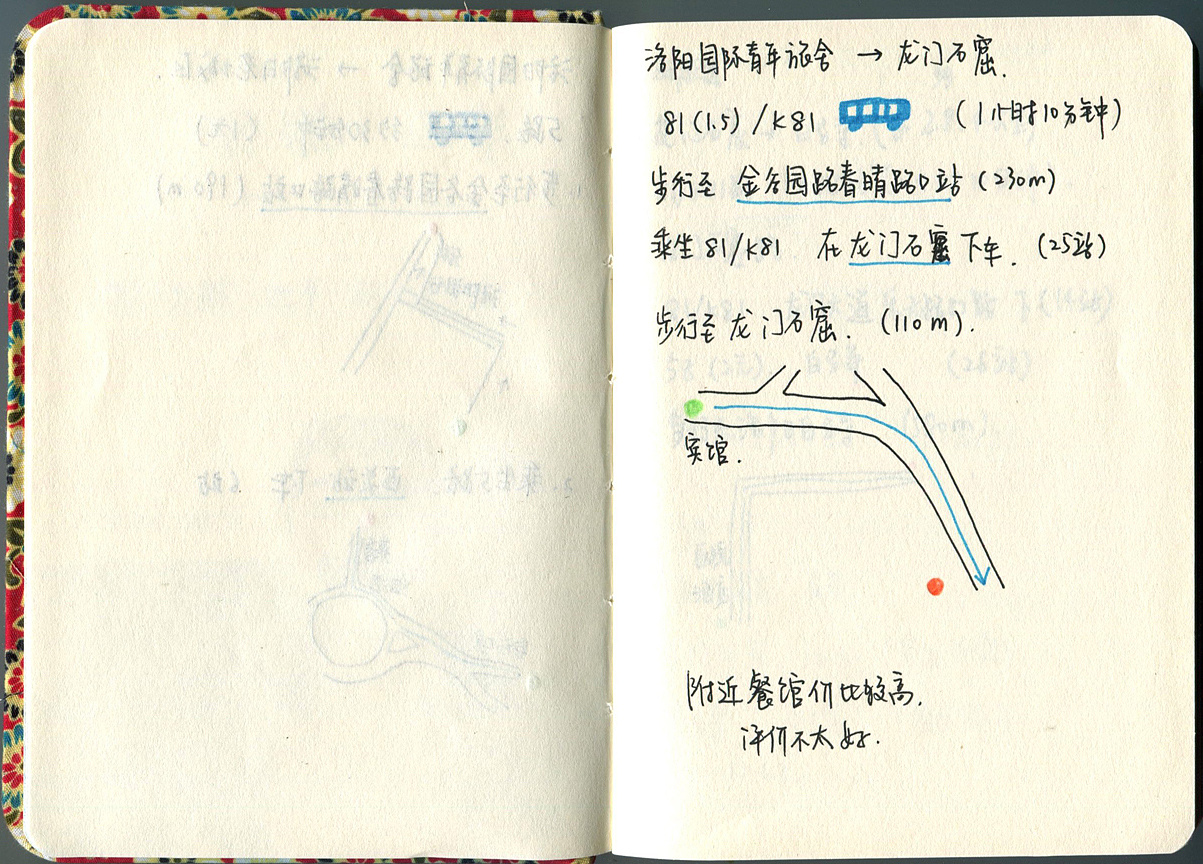 洛阳国际青年旅舍 → 龙门石窟.
81(1.5) / K81 (1小时10分钟)
步行至 金谷园路春晴路口站 (230m)
乘坐 81/K81 在 龙门石窟 下车. (25站)
步行至 龙门石窟. (110m).
宾馆.
附近餐馆价比较高.
评价不太好.